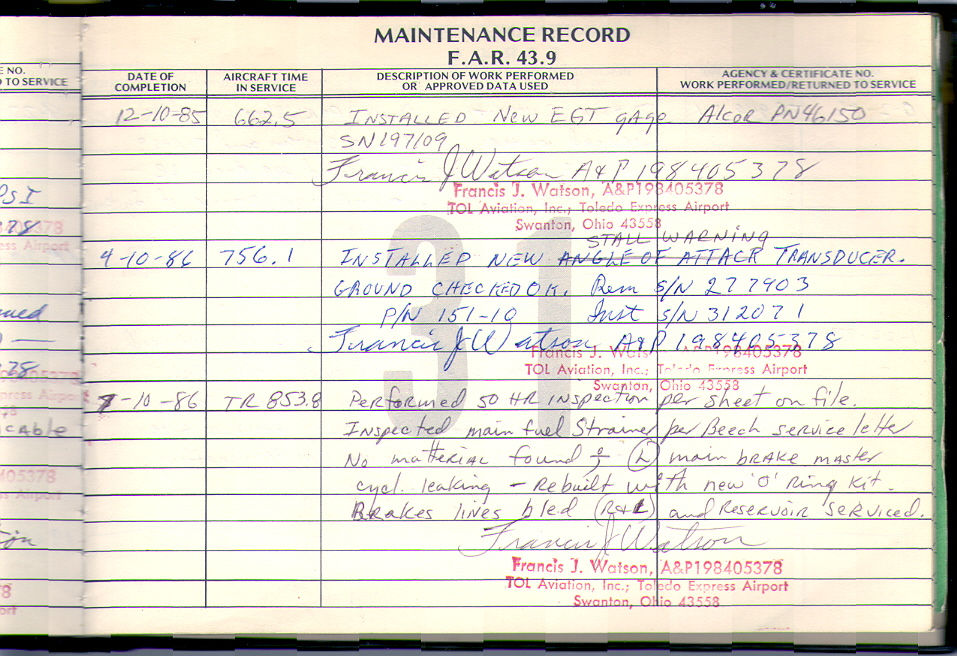 MAINTENANCE RECORD
F.A.R. 43.9
E NO.
D TO SERVICE
DATE OF COMPLETION
AIRCRAFT TIME IN SERVICE
DESCRIPTION OF WORK PERFORMED OR APPROVED DATA USED
AGENCY & CERTIFICATE NO. WORK PERFORMED/RETURNED TO SERVICE
31
12-10-85 662.5 INSTALLED NEW EGT gAge Alcor PN46150
SN197109
Francis J Watson A&P 198405378
Francis J. Watson, A&P198405378
TOL Aviation, Inc.; Toledo Express Airport
Swanton, Ohio 43558
STALL WARNING
4-10-86 756.1 INSTALLED NEW ANGLE OF ATTACK TRANSDUCER.
GROUND CHECKED OK. Rem S/N 277903
P/N 151-10 Inst S/N 312071
Francis J Watson A&P 198405378
Francis J. Wats A&P198405378
TOL Aviation, Inc.; Toledo Express Airport
Swanton, Ohio 43558
7-10-86 TR 853.8 Performed 50 HR INSPECTION per sheet on file.
Inspected main fuel Strainer per Beech service letter
No matterial found ; (L) main BRAKE master
cycl. leaking - Rebuilt with new 'O' Ring Kit.
Brakes lives bled (R&L) and Reservoir Serviced.
Francis J Watson
Francis J. Watson, A&P198405378
TOL Aviation, Inc.; Toledo Express Airport
Swanton, Ohio 43558
PSI
ess Airport
cable